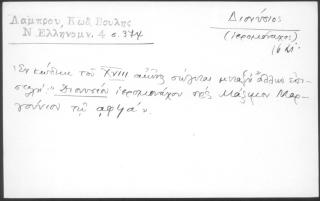 Λάμπρου, Κωδ. Βουλῆς
Ν. Ἑλληνομν. 4 σ. 374
Διονύσιος
(ἱερομόναχος)
16 αἰ.
Ἐν κώδικι τοῦ XVIII αἰῶνος σώζεται μεταξὺ ἄλλων ἐπι-
στολή: "Διονυσίου ἱερομονάχου πρὸς Μάξιμον Μαρ-
γούνιον τῷ αφψα".